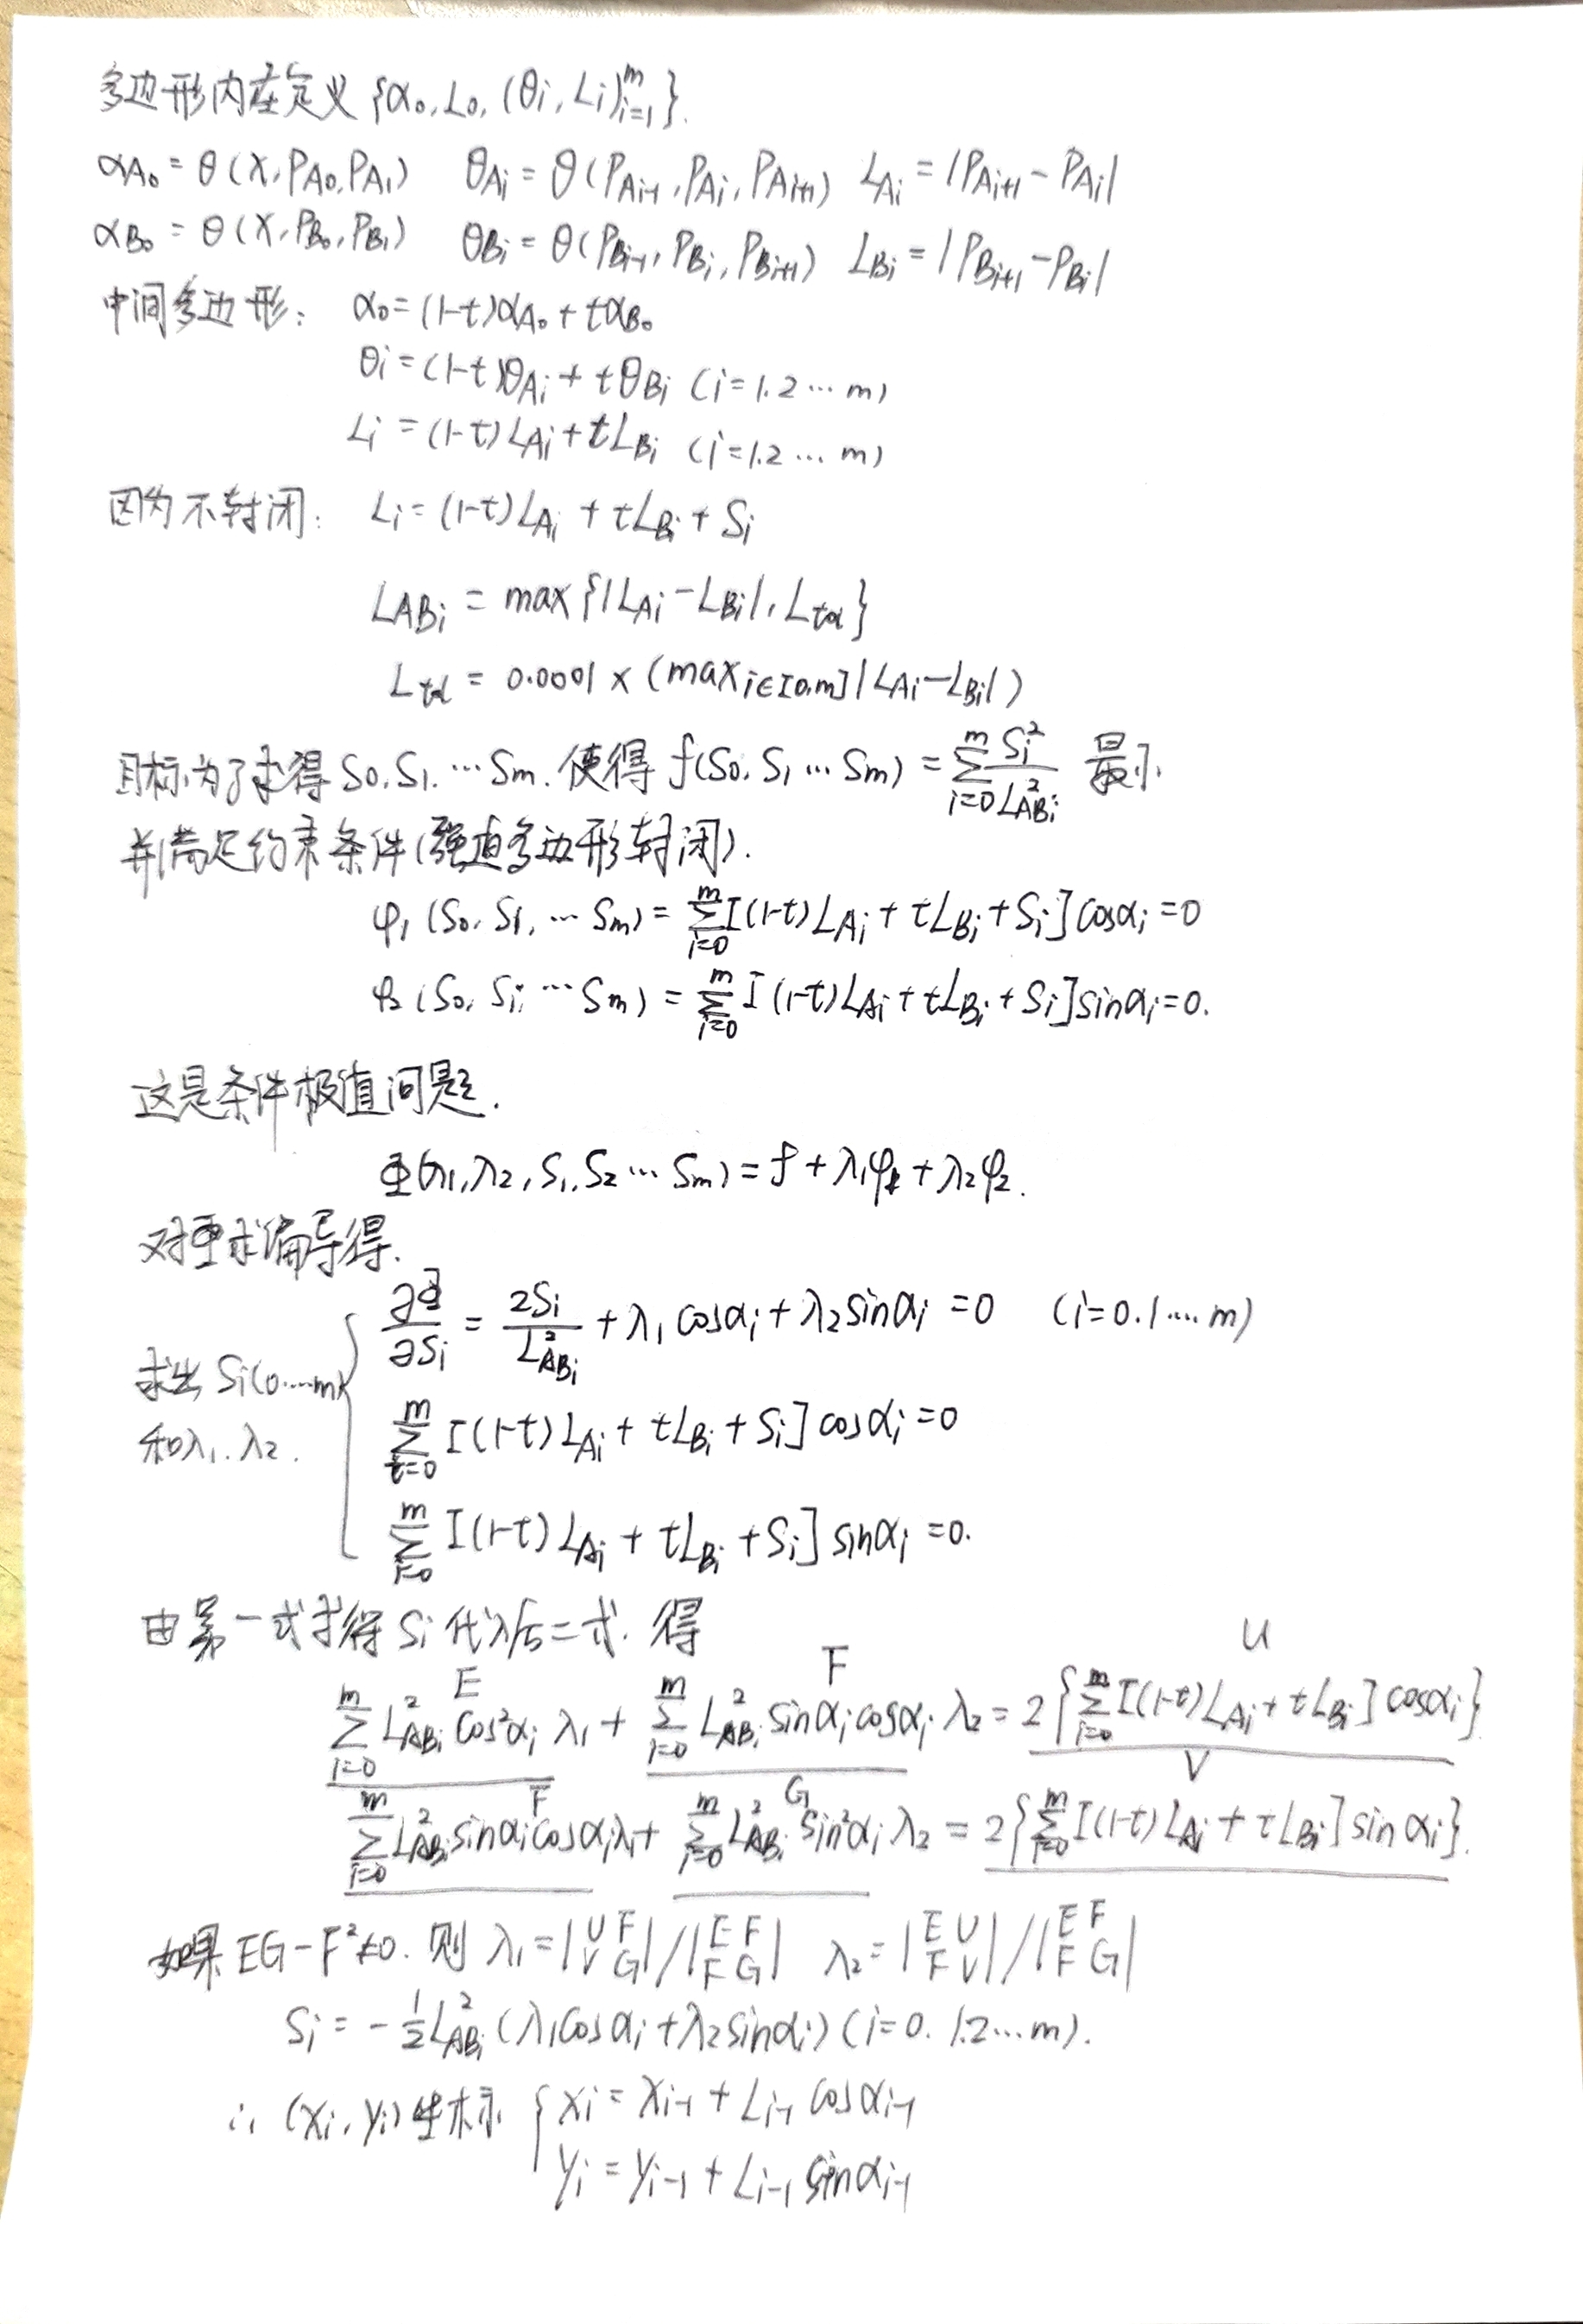 多边形内在定义 {α₀, L₀, (θi, Li)ᵐᵢ₌₁}.
αA₀ = θ(X, PA₀, PA₁)  θAi = θ(PAi-1, PAi, PAi+1)  LAi = |PAi+1 - PAi|
αB₀ = θ(X, PB₀, PB₁)  θBi = θ(PBi-1, PBi, PBi+1)  LBi = |PBi+1 - PBi|
中间多边形: α₀ = (1-t)αA₀ + tαB₀
θi = (1-t)θAi + tθBi (i=1.2…m)
Li = (1-t)LAi + tLBi (i=1.2…m)
因为不封闭: Li = (1-t)LAi + tLBi + Si
LABi = max{|LAi - LBi|, Ltol}
Ltol = 0.0001 × (max i∈[0,m] |LAi - LBi|)
目标为了求得 S0, S1, … Sm. 使得 f(S0, S1 … Sm) = Σᵐᵢ₌₀ Si²/L²ABi 最小
并满足约束条件(强迫多边形封闭).
φ₁(S0, S1, … Sm) = Σᵐᵢ₌₀[(1-t)LAi + tLBi + Si]cosαi = 0
φ₂(S0, Si, … Sm) = Σᵐᵢ₌₀[(1-t)LAi + tLBi + Si]sinαi = 0.
这是条件极值问题.
Φ(λ1, λ2, S1, S2 … Sm) = f + λ₁φ₁ + λ₂φ₂.
对Φ求偏导得.
∂Φ/∂Si = 2Si/L²ABi + λ₁cosαi + λ₂sinαi = 0 (i=0.1…m)
求出 Si(0…m)
Σᵐₜ₌₀[(1-t)LAi + tLBi + Si]cosαi = 0
和λ₁.λ₂.
Σᵐᵢ₌₀[(1-t)LAi + tLBi + Si]sinαi = 0.
由第一式求得 Si 代入后二式. 得
E F U
Σᵐᵢ₌₀ L²ABi cos²αi λ₁ + Σᵐᵢ₌₀ L²ABi sinαi cosαi λ₂ = 2{Σᵐᵢ₌₀[(1-t)LAi + tLBi]cosαi}
F G V
Σᵐᵢ₌₀ L²ABi sinαi cosαi λ₁ + Σᵐᵢ₌₀ L²ABi sin²αi λ₂ = 2{Σᵐᵢ₌₀[(1-t)LAi + tLBi]sinαi}.
如果 EG-F²≠0. 则 λ₁ = |U F; V G| / |E F; F G|  λ₂ = |E U; F V| / |E F; F G|
Si = -½L²ABi(λ₁cosαi + λ₂sinαi) (i=0.1.2…m).
∴ (xi, yi)坐标 { xi = xi-1 + Li-1 cosαi-1
yi = yi-1 + Li-1 sinαi-1